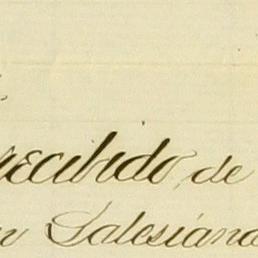 recibido, de
Salesiana